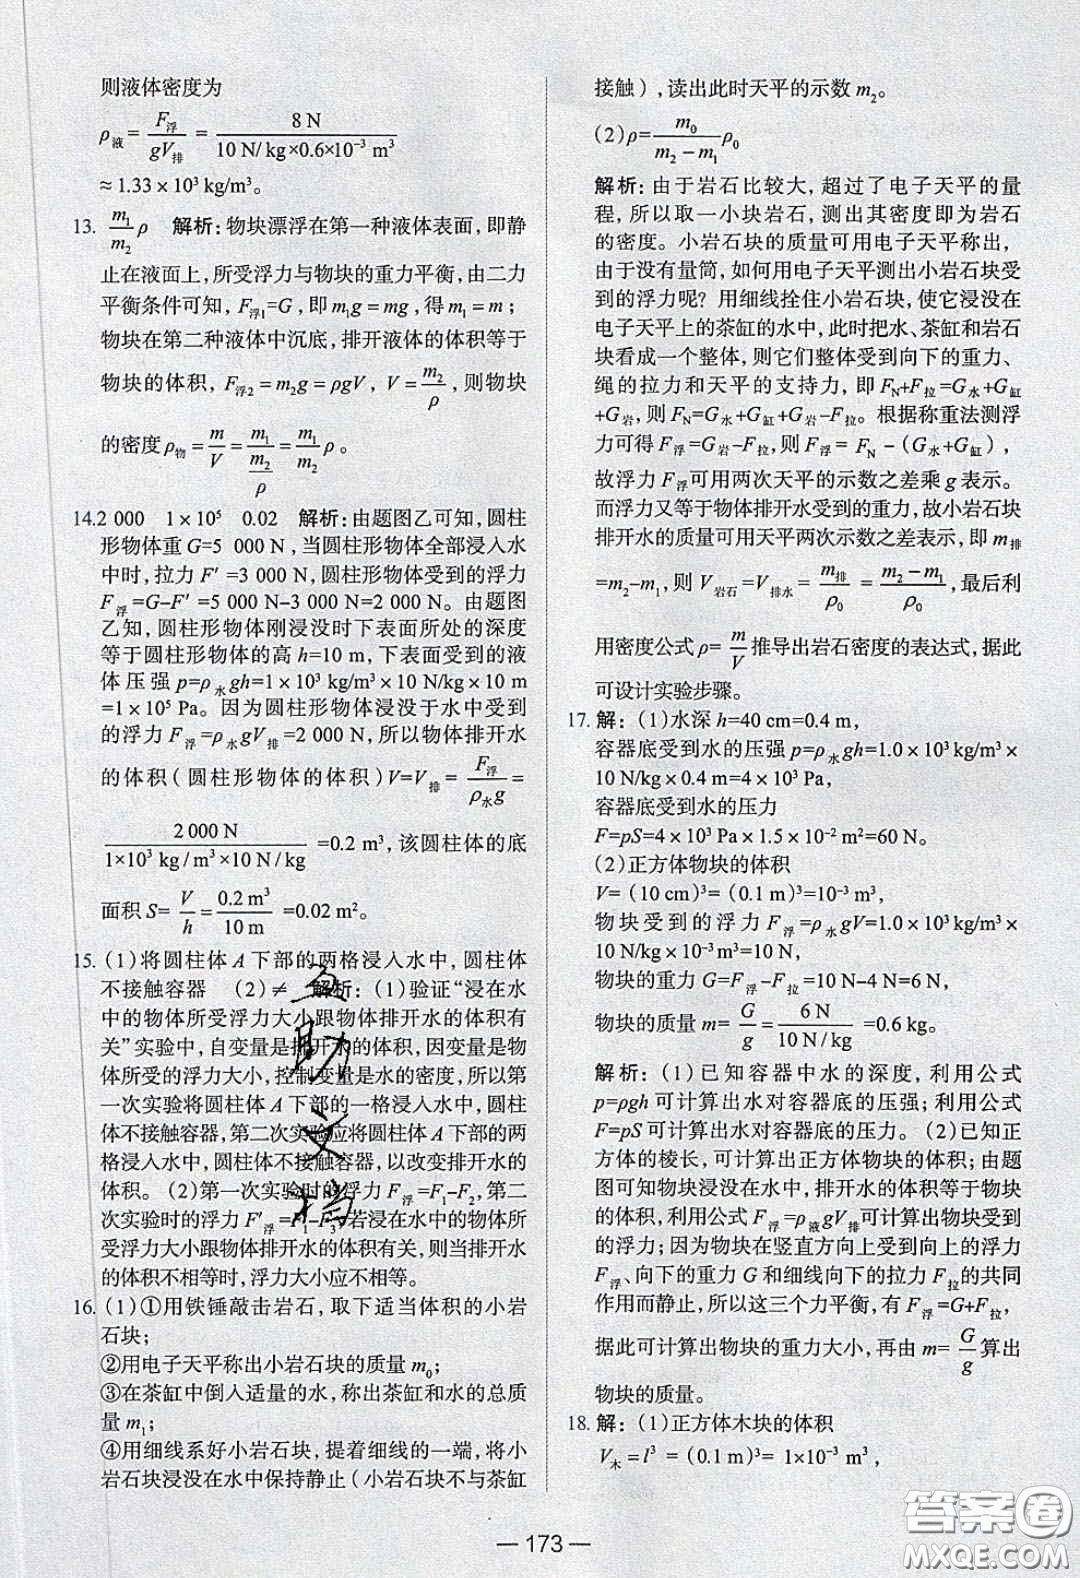 则液体密度为
ρ液=F浮/gV排=8 N/(10 N/kg×0.6×10⁻³ m³)
≈1.33×10³ kg/m³。
13. (m₁/m₂)ρ 解析:物块漂浮在第一种液体表面,即静
止在液面上,所受浮力与物块的重力平衡,由二力
平衡条件可知,F浮1=G,即m₁g=mg,得m₁=m;
物块在第二种液体中沉底,排开液体的体积等于
物块的体积,F浮2=m₂g=ρgV,V=m₂/ρ,则物块
的密度ρ物=m/V=m₁/(m₂/ρ)=(m₁/m₂)ρ。
14.2 000 1×10⁵ 0.02 解析:由题图乙可知,圆柱
形物体重G=5 000 N,当圆柱形物体全部浸入水
中时,拉力F′=3 000 N,圆柱形物体受到的浮力
F浮=G-F′=5 000 N-3 000 N=2 000 N。由题图
乙知,圆柱形物体刚浸没时下表面所处的深度
等于圆柱形物体的高h=10 m,下表面受到的液
体压强p=ρ水gh=1×10³ kg/m³×10 N/kg×10 m
=1×10⁵ Pa。因为圆柱形物体浸没于水中受到
的浮力F浮=ρ水gV排=2 000 N,所以物体排开水
的体积(圆柱形物体的体积)V=V排=F浮/ρ水g=
2 000 N/(1×10³ kg/m³×10 N/kg)=0.2 m³,该圆柱体的底
面积S=V/h=0.2 m³/10 m=0.02 m²。
15. (1)将圆柱体A下部的两格浸入水中,圆柱体
不接触容器 (2)≠ 解析:(1)验证“浸在水
中的物体所受浮力大小跟物体排开水的体积有
关”实验中,自变量是排开水的体积,因变量是物
体所受的浮力大小,控制变量是水的密度,所以第
一次实验将圆柱体A下部的一格浸入水中,圆柱
体不接触容器,第二次实验应将圆柱体A下部的两
格浸入水中,圆柱体不接触容器,以改变排开水的
体积。(2)第一次实验时的浮力F浮=F₁-F₂,第二
次实验时的浮力F′浮=F₁-F₃,若浸在水中的物体所
受浮力大小跟物体排开水的体积有关,则当排开水
的体积不相等时,浮力大小应不相等。
16. (1)①用铁锤敲击岩石,取下适当体积的小岩
石块;
②用电子天平称出小岩石块的质量m₀;
③在茶缸中倒入适量的水,称出茶缸和水的总质
量m₁;
④用细线系好小岩石块,提着细线的一端,将小
岩石块浸没在水中保持静止(小岩石块不与茶缸
接触),读出此时天平的示数m₂。
(2)ρ=m₀/(m₂-m₁)ρ₀
解析:由于岩石比较大,超过了电子天平的量
程,所以取一小块岩石,测出其密度即为岩石
的密度。小岩石块的质量可用电子天平称出,
由于没有量筒,如何用电子天平测出小岩石块受
到的浮力呢?用细线拴住小岩石块,使它浸没在
电子天平上的茶缸的水中,此时把水、茶缸和岩石
块看成一个整体,则它们整体受到向下的重力、
绳的拉力和天平的支持力,即Fɴ+F拉=G水+G缸
+G岩,则Fɴ=G水+G缸+G岩-F拉。根据称重法测浮
力可得F浮=G岩-F拉,则F浮=Fɴ-(G水+G缸),
故浮力F浮可用两次天平的示数之差乘g表示。
而浮力又等于物体排开水受到的重力,故小岩石块
排开水的质量可用天平两次示数之差表示,即m排
=m₂-m₁,则V岩石=V排水=m排/ρ₀=(m₂-m₁)/ρ₀,最后利
用密度公式ρ=m/V推导出岩石密度的表达式,据此
可设计实验步骤。
17. 解:(1)水深h=40 cm=0.4 m,
容器底受到水的压强p=ρ水gh=1.0×10³ kg/m³×
10 N/kg×0.4 m=4×10³ Pa,
容器底受到水的压力
F=pS=4×10³ Pa×1.5×10⁻² m²=60 N。
(2)正方体物块的体积
V=(10 cm)³=(0.1 m)³=10⁻³ m³,
物块受到的浮力F浮=ρ水gV=1.0×10³ kg/m³×
10 N/kg×10⁻³ m³=10 N,
物块的重力G=F浮-F拉=10 N-4 N=6 N,
物块的质量m=G/g=6 N/(10 N/kg)=0.6 kg。
解析:(1)已知容器中水的深度,利用公式
p=ρgh可计算出水对容器底的压强;利用公式
F=pS可计算出水对容器底的压力。(2)已知正
方体的棱长,可计算出正方体物块的体积;由题
图可知物块浸没在水中,排开水的体积等于物块
的体积,利用公式F浮=ρ液gV排可计算出物块受到
的浮力;因为物块在竖直方向上受到向上的浮力
F浮、向下的重力G和细线向下的拉力F拉的共同
作用而静止,所以这三个力平衡,有F浮=G+F拉,
据此可计算出物块的重力大小,再由m=G/g算出
物块的质量。
18. 解:(1)正方体木块的体积
V木=l³=(0.1 m)³=1×10⁻³ m³,
— 173 —
互助文档
答案圈
MXQE.COM